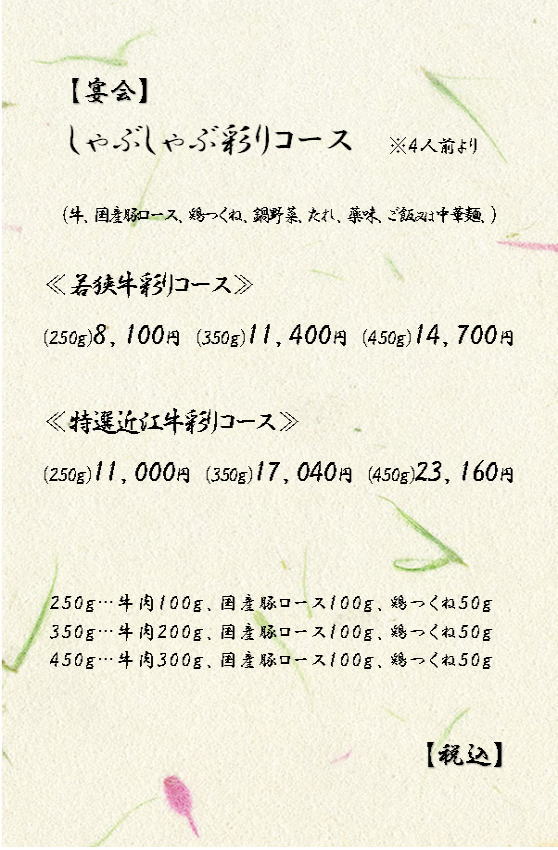 【宴会】
しゃぶしゃぶ彩りコース ※4人前より
(牛、国産豚ロース、鶏つくね、鍋野菜、たれ、薬味、ご飯又は中華麺、)
≪若狭牛彩りコース≫
(250g)8,100円 (350g)11,400円 (450g)14,700円
≪特選近江牛彩りコース≫
(250g)11,000円 (350g)17,040円 (450g)23,160円
250g…牛肉100g、国産豚ロース100g、鶏つくね50g
350g…牛肉200g、国産豚ロース100g、鶏つくね50g
450g…牛肉300g、国産豚ロース100g、鶏つくね50g
【税込】